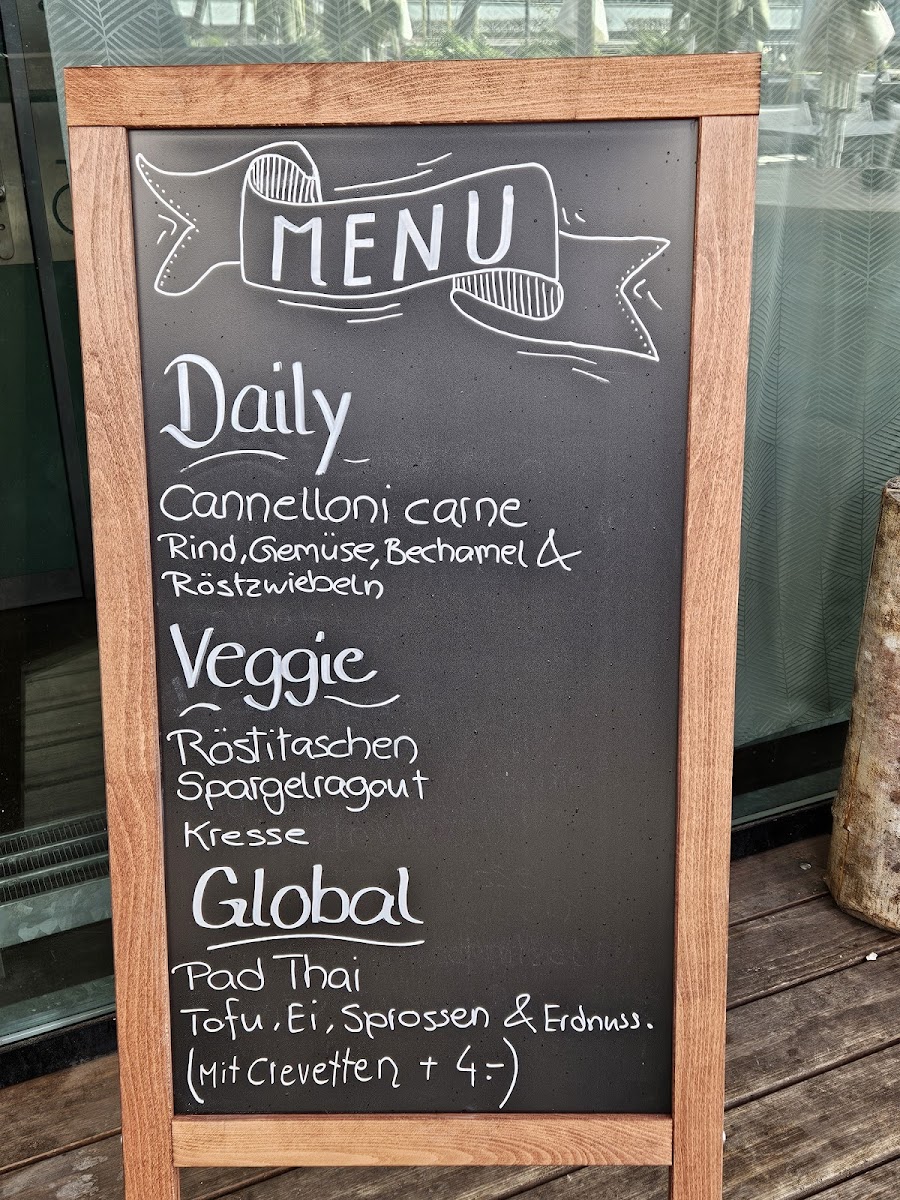 MENU
Daily
Cannelloni carne
Rind, Gemüse, Bechamel &
Röstzwiebeln
Veggie
Röstitaschen
Spargelragout
Kresse
Global
Pad Thai
Tofu, Ei, Sprossen & Erdnuss.
(Mit Crevetten + 4.-)